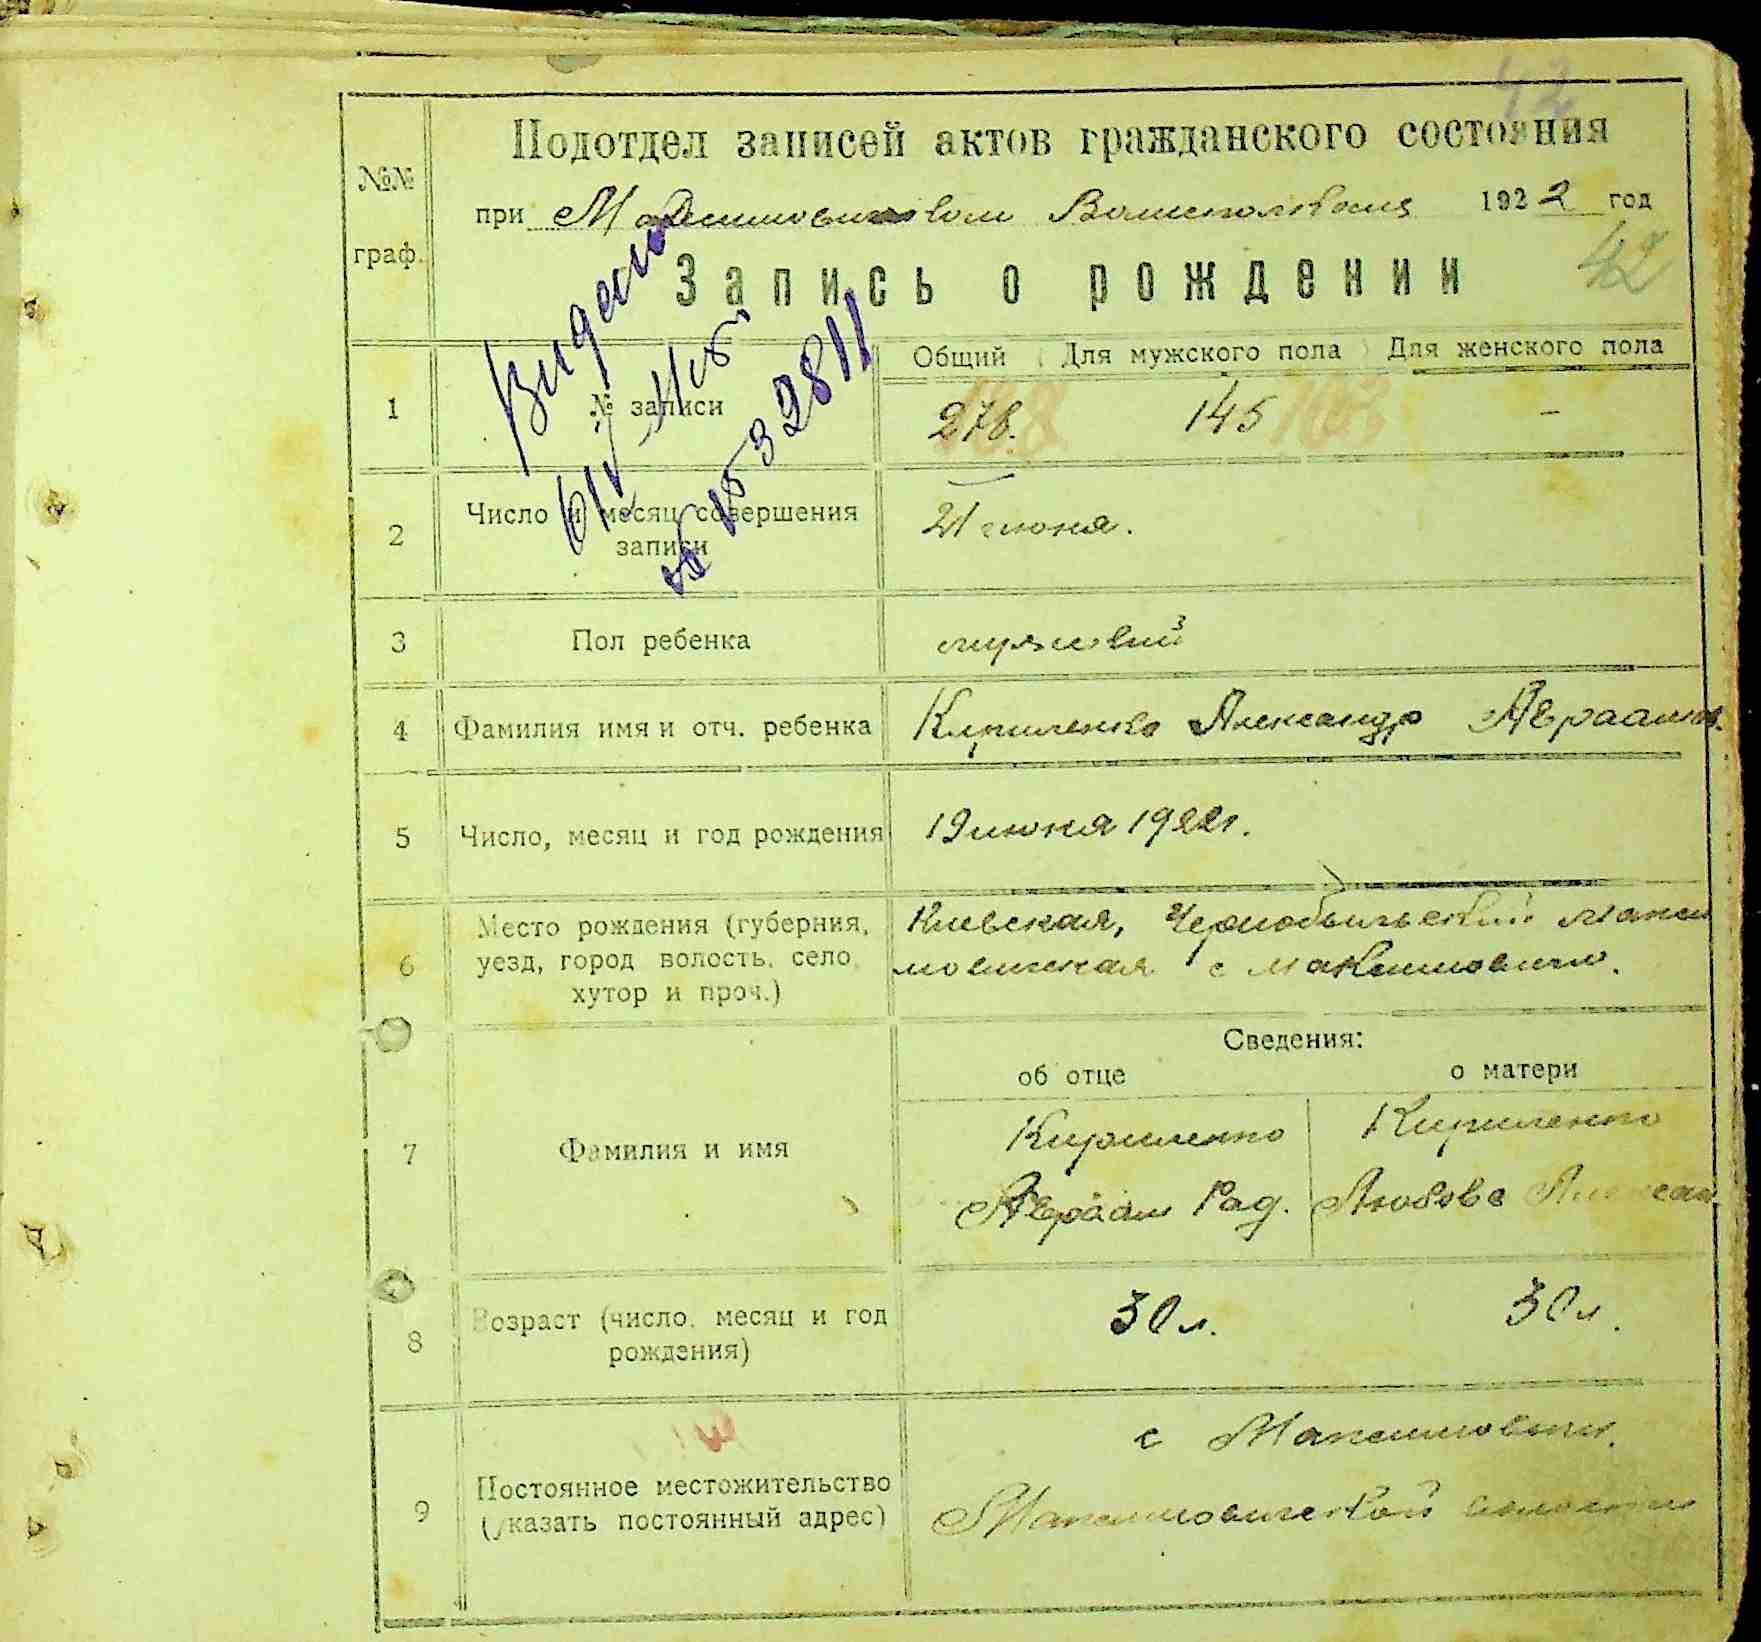 42
Подотдел записей актов гражданского состояния
№№
граф.
при Максимовичском Волисполкоме 1922 год
42
Запись о рождении
Общий Для мужского пола Для женского пола
1 № записи 278. 145 —
2 Число и месяц совершения
записи
21 июня.
3 Пол ребенка мужской
4 Фамилия имя и отч. ребенка Кириленко Александр Авраамов.
5 Число, месяц и год рождения 19 июня 1922 г.
6 Место рождения (губерния,
уезд, город волость, село,
хутор и проч.)
Киевская, Чернобыльский Макси
мовичская с Максимовичи.
Сведения:
об отце о матери
7 Фамилия и имя
Кириленко Кириленко
Авраам Рад. Любовь Алексан
8 Возраст (число, месяц и год
рождения)
30 л. 30 л.
9 Постоянное местожительство
(указать постоянный адрес)
с Максимовичи.
Максимовической волости
Видано